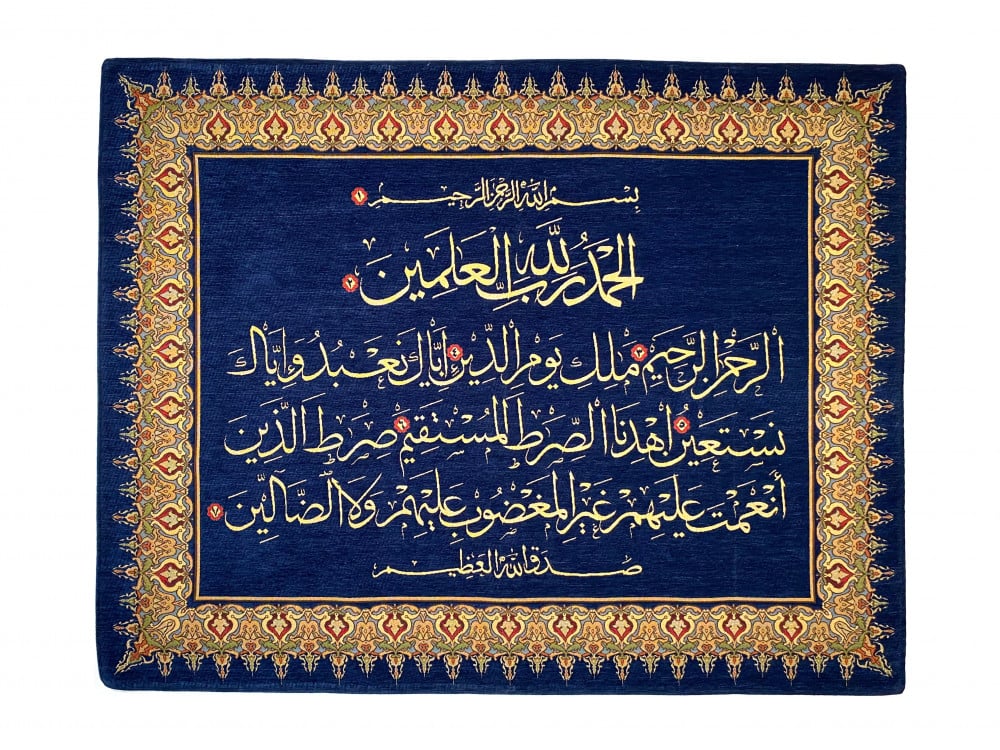 بِسْمِ اللَّهِ الرَّحْمَٰنِ الرَّحِيمِ ١
الْحَمْدُ لِلَّهِ رَبِّ الْعَالَمِينَ ٢
الرَّحْمَٰنِ الرَّحِيمِ ٣ مَٰلِكِ يَوْمِ الدِّينِ ٤ إِيَّاكَ نَعْبُدُ وَإِيَّاكَ
نَسْتَعِينُ ٥ اهْدِنَا الصِّرَٰطَ الْمُسْتَقِيمَ ٦ صِرَٰطَ الَّذِينَ
أَنْعَمْتَ عَلَيْهِمْ غَيْرِ الْمَغْضُوبِ عَلَيْهِمْ وَلَا الضَّالِّينَ ٧
صدق الله العظيم